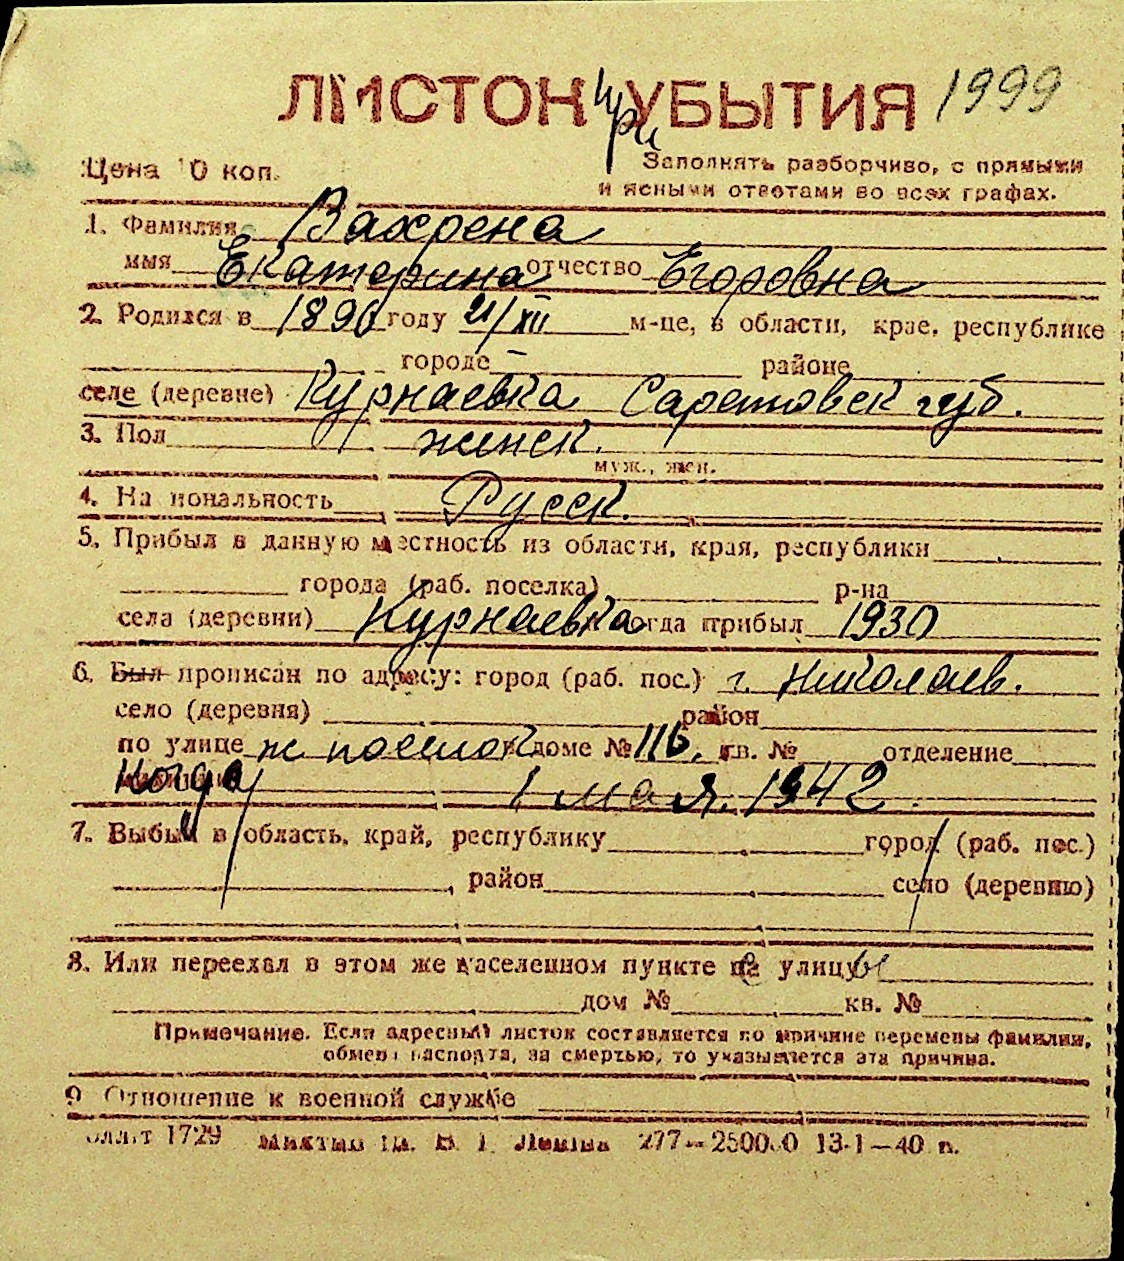 ЛИСТОК при УБЫТИЯ 1999
Цена 10 коп.
Заполнять разборчиво, с прямыми
и ясными ответами во всех графах.
1. Фамилия Вахрена
имя Екатерина отчество Егоровна
2. Родился в 1890 году 21/XII м-це, в области, крае, республике
городе — районе
селе (деревне) Курнаевка Саратовск губ.
3. Пол женск.
муж., жен.
4. Национальность Русск.
5. Прибыл в данную местность из области, края, республики
города (раб. поселка) р-на
села (деревни) Курнаевка когда прибыл 1930
6. Был прописан по адресу: город (раб. пос.) г. Николаев.
село (деревня) район
по улице ж поселок в доме № 116. кв. № отделение
когда 1 мая. 1942
7. Выбыл в область, край, республику город (раб. пос.)
район село (деревню)
8. Или переехал в этом же населенном пункте с улицы
дом № кв. №
Примечание. Если адресный листок составляется по причине перемены фамилии,
обмена паспорта, за смертью, то указывается эта причина.
9. Отношение к военной службе
1729 им. В. И. Ленина 277—250000 13-1—40 п.